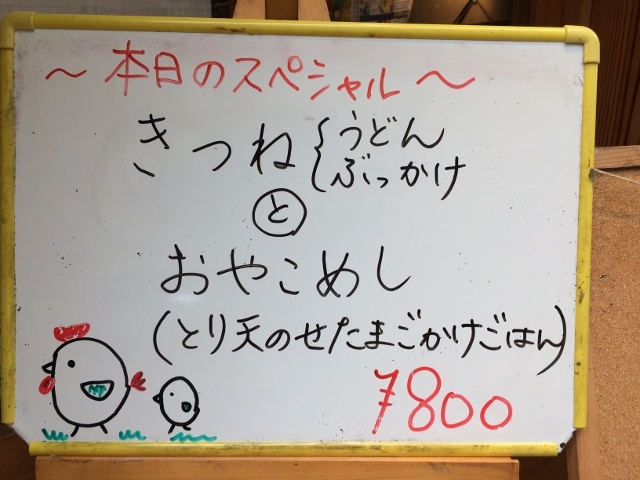 ～本日のスペシャル～
きつね{うどん
ぶっかけ
と
おやこめし
(とり天のせたまごかけごはん)
¥800